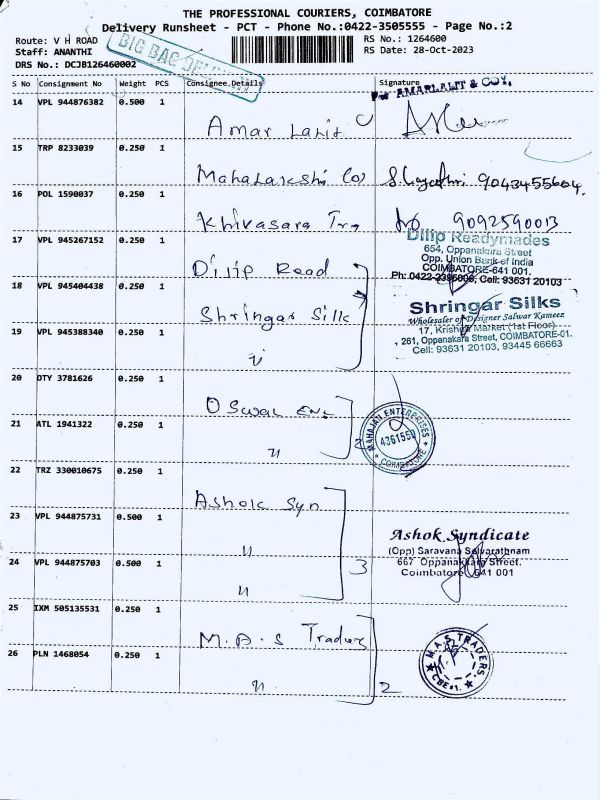 THE PROFESSIONAL COURIERS, COIMBATORE
Delivery Runsheet - PCT - Phone No.:0422-3505555 - Page No.:2
Route: V H ROAD
Staff: ANANTHI
DRS No.: DCJB126460002
BIG BAG
RS No.: 1264600
RS Date: 28-Oct-2023
S No Consignment No Weight PCS Consignee Details Signature
For AMARLALIT & COY.
14 VPL 944876382 0.500 1
Amar Lalit
15 TRP 8233039 0.250 1
Mahalakshi Co
9043455604
16 POL 1590037 0.250 1
Khivasara Trg
9092590013
17 VPL 945267152 0.250 1
Dilip Read
Dilip Readymades
654, Oppanakara Street
Opp. Union Bank of India
COIMBATORE-641 001.
Ph: 0422-2395008, Cell: 93631 20103
18 VPL 945404438 0.250 1
Shringar Silk
Shringar Silks
Wholesaler of Designer Salwar Kameez
17, Krishna Market (1st Floor)
261, Oppanakara Street, COIMBATORE-01.
Cell: 93631 20103, 93445 66663
19 VPL 945388340 0.250 1
"
20 DTY 3781626 0.250 1
Oswal Ent
MAHAJAN ENTERPRISES
4361559
COIMBATORE
21 ATL 1941322 0.250 1
"
2
22 TRZ 330010675 0.250 1
Ashok Syn
23 VPL 944875731 0.500 1
"
Ashok Syndicate
(Opp) Saravana Selvarathnam
667 Oppanakkara Street.
Coimbatore 641 001
24 VPL 944875703 0.500 1
"
3
25 IXM 505135531 0.250 1
M.A.S Traders
M.A.S. TRADERS.
CBE-1.
26 PLN 1468054 0.250 1
"
2